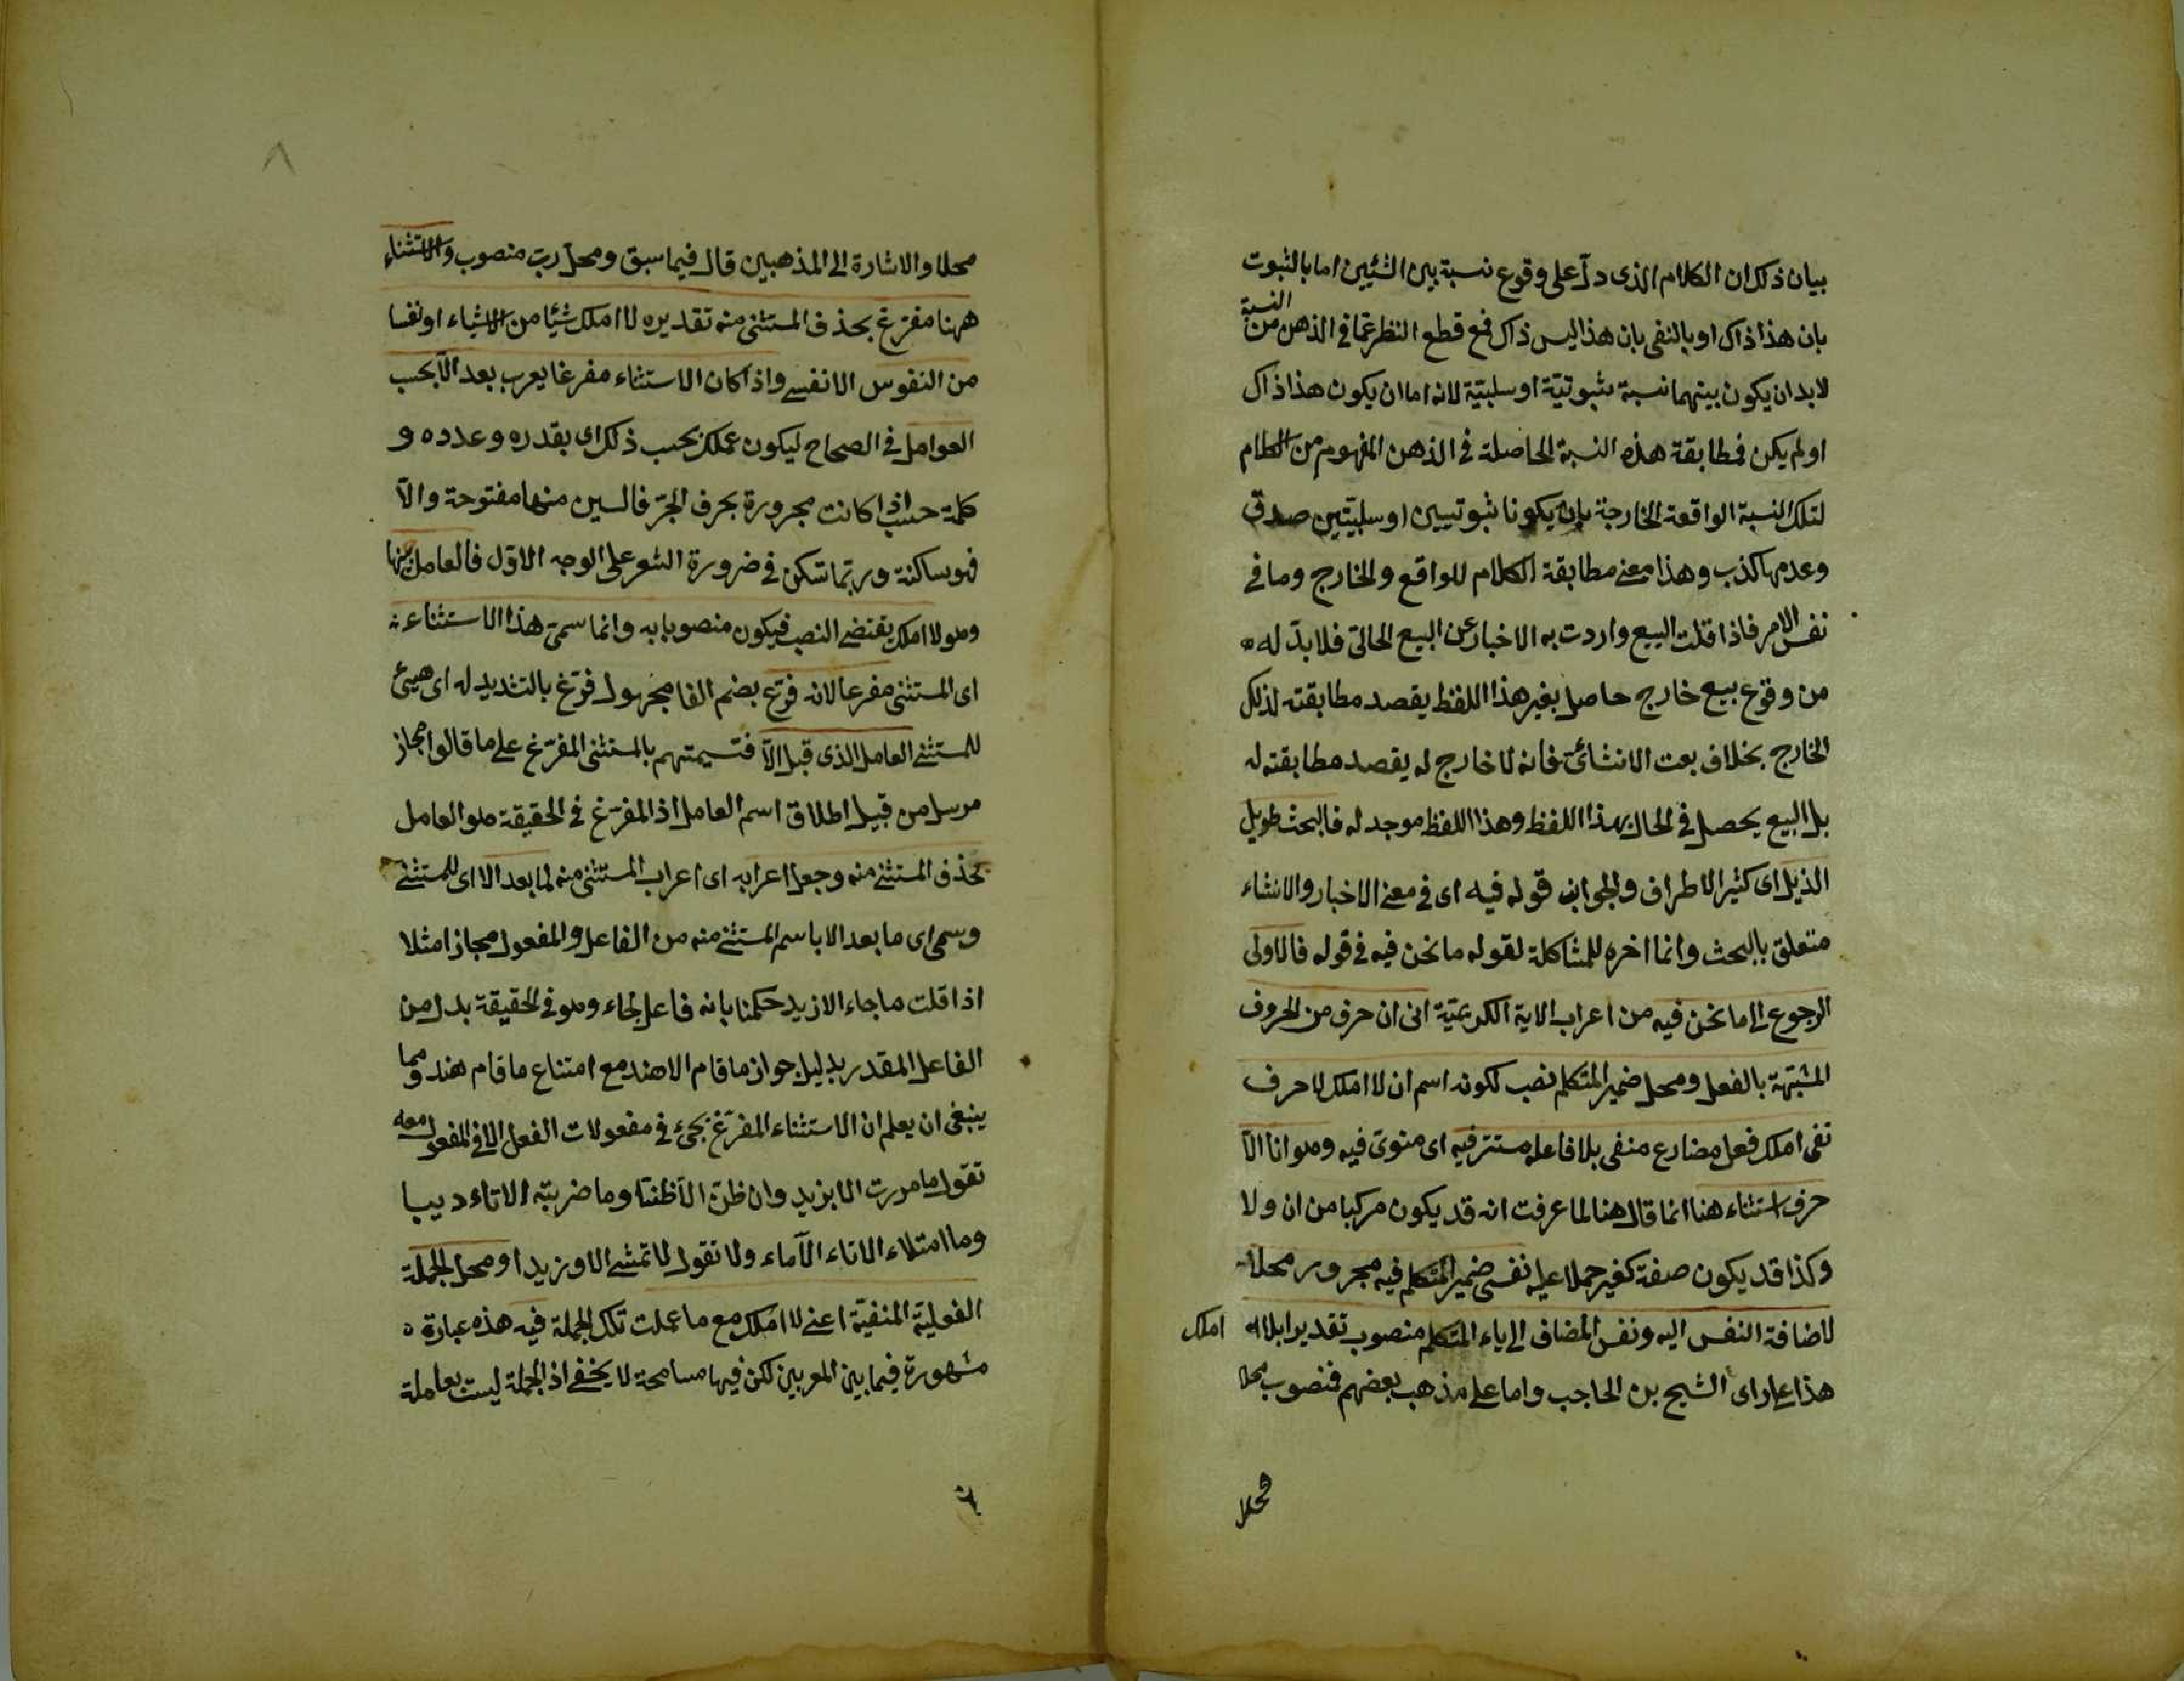 بيان ذلك ان الكلام الذى دل على وقوع نسبة بين الشيئين اما بالثبوت
بان هذا ذاك او بالنفى بان هذا ليس ذاك فمع قطع النظر عما فى الذهن من النسبة
لا بد ان يكون بينهما نسبة ثبوتية او سلبية لانه اما ان يكون هذا ذاك
او لم يكن فمطابقة هذه النسبة الحاصلة فى الذهن المفهوم من الكلام
لتلك النسبة الواقعة الخارجة بان يكونا ثبوتيين او سلبيتين صدق
وعدمها كذب وهذا معنى مطابقة الكلام للواقع والخارج وما فى
نفس الامر فاذا قلت البيع واردت به الاخبار عن البيع الحالى فلا بد له
من وقوع بيع خارج حاصل بغير هذا اللفظ يقصد مطابقته لذلك
الخارج بخلاف بعت الانشائى فانه لا خارج له يقصد مطابقته له
بل البيع يحصل فى الحال بهذا اللفظ وهذا اللفظ موجد له فالبحث طويل
الذيل اى كثير الاطراف والجوانب قوله فيه اى فى معنى الاخبار والانشاء
متعلق بالبحث وانما اخره للمشاكلة لقوله ما نحن فيه فى قوله فالاولى
الرجوع الى ما نحن فيه من اعراب الاية الكريمة انى ان حرف من الحروف
المشبهة بالفعل ومحل ضمير المتكلم نصب لكونه اسم ان لا املك لا حرف
نفى املك فعل مضارع منفى بلا فاعله مستتر فيه اى منوى فيه وهو انا الا
حرف استثناء هنا انما قال هنا لما عرفت انه قد يكون مركبا من ان ولا
وكذا قد يكون صفة كغير حملا عليه نفسى ضمير المتكلم فيه مجرور محلا
لاضافة النفس اليه ونفس المضاف الى ياء المتكلم منصوب تقديرا بلا املك
هذا على راى الشيخ بن الحاجب واما على مذهب بعضهم فنصوب محلا
محلا
٨
محلا والاشارة الى المذهبين قال فيما سبق ومحل رب منصوب والاستثناء
ههنا مفرغ بحذف المستثنى منه تقديره لا املك شيئا من الاشياء او نفسا
من النفوس الا نفسى واذا كان الاستثناء مفرغا يعرب بعد الا بحسب
العوامل فى الصحاح ليكون عملك بحسب ذلك اى بقدره وعدده و
كلمة حسب اذا كانت مجرورة بحرف الجر فالسين منها مفتوحة والا
فهو ساكنة وربما تسكن فى ضرورة الشعر على الوجه الاول فالعامل ههنا
وهو لا املك يقتضى النصب فيكون منصوبا به وانما سمى هذا الاستثناء
اى المستثنى مفرعا لانه فرغ بضم الفا مجهول فرّغ بالتشديد له اى هيئ
للمستثنى العامل الذى قبل الا فتسيمتهم بالمستثنى المفرّغ على ما قالوا مجاز
مرسل من قبيل اطلاق اسم العامل اذ المفرّغ فى الحقيقة هو العامل
بحذف المستثنى منه وجعل اعرابه اى اعراب المستثنى منه لما بعد الا اى للمستثنى
وسمى اى ما بعد الا باسم المستثنى منه من الفاعل والمفعول مجازا مثلا
اذا قلت ما جاء الا زيد حكمنا بانه فاعل لجاء وهو فى الحقيقة بدل من
الفاعل المقدر بدليل جواز ما قام الا هند مع امتناع ما قام هند ومما
ينبغى ان يعلم ان الاستثناء المفرّغ يجئ فى مفعولات الفعل الا فى المفعول معه
تقول ما مررت الا بزيد وان ظن الا ظنا وما ضربته الا تاءديبا
وما امتلاء الاناء الا ماء ولا تقول لا تمشى الا وزيدا ومحل الجملة
الفعلية المنفية اعنى لا املك مع ما عملت تلك الجملة فيه هذه عبارة
مشهورة فيما بين المعربين لكن فيها مسامحة لا يخفى اذ الجملة ليست بعاملة